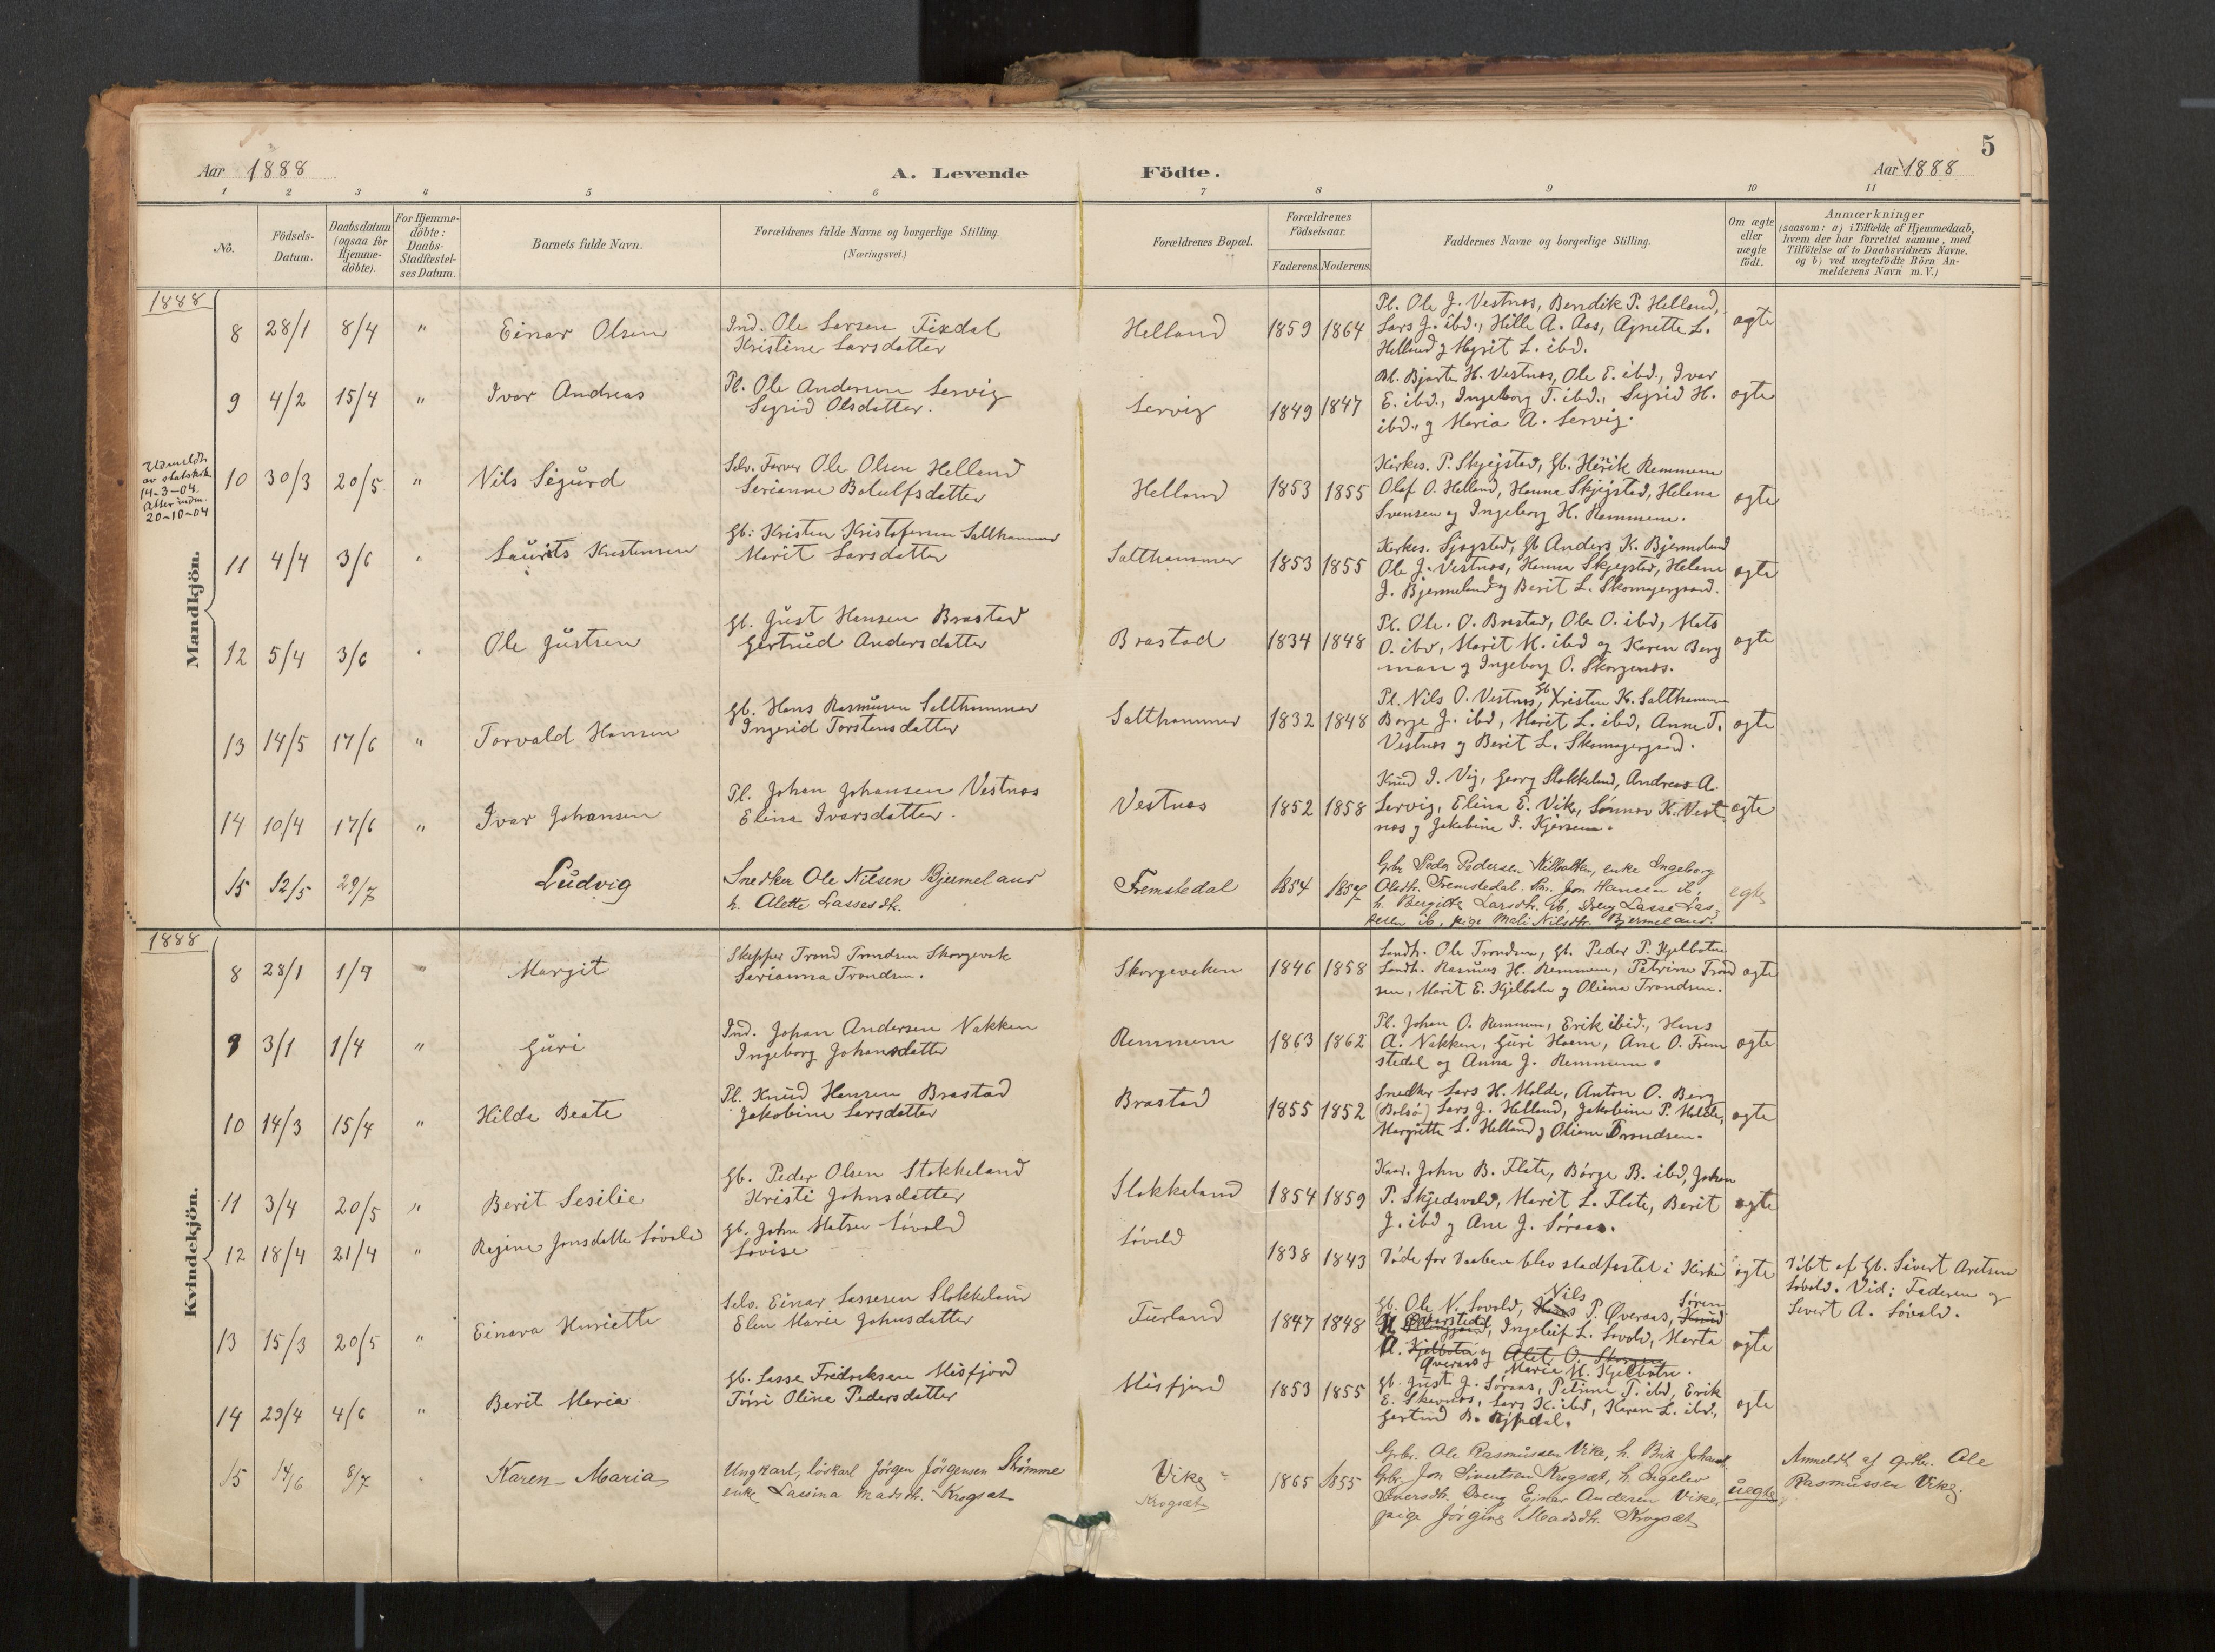 5
Aar 1888
A. Levende Födte.
Aar 1888
1 2 3 4 5 6 7 8 9 10 11
No.
Födsels-
Datum.
Daabsdatum
(ogsaa for
Hjemme-
döbte).
For Hjemme-
döbte:
Daabs-
Stadfæstel-
ses Datum.
Barnets fulde Navn.
Forældrenes fulde Navne og borgerlige Stilling.
(Næringsvei.)
Forældrenes Bopæl.
Forældrenes
Födselsaar.
Faderens. Moderens.
Faddernes Navne og borgerlige Stilling.
Om ægte
eller
uægte
födt.
Anmærkninger
(saasom: a) i Tilfælde af Hjemmedaab,
hvem der har forrettet samme, med
Tilföielse af to Daabsvidners Navne.
og b) ved uægtefödte Börn An-
melderens Navn m. V.)
1888
Mandkjön.
8 28/1 8/4 " Einar Olsen
Ind. Ole Larsen Fixdal
Kristine Larsdatter
Helland 1859 1864
Pl. Ole J. Vestnes, Bendik P. Helland,
Lars J. ibd., Hille A. Aas, Agnette L.
Helland g Magrit L. ibd.
ægte
9 4/2 15/4 " Ivar Andreas
Pl. Ole Andersen Servig
Sigrid Olsdatter.
Servig 1849 1847
Pl. Bjarte H. Vestnes, Ole E. ibd., Ivar
E. ibd., Ingeborg T. ibd., Sigrid H.
ibd., g Maria A. Servig.
ægte
Udmeldt
av statskirk
14-3-04.
Atter indm.
20-10-04
10 30/3 20/5 " Nils Sigurd
Selv. Farver Ole Olsen Helland
Serianne Botulfsdatter
Helland 1853 1855
Kirkes. P. Skjegstad, Gb. Henrik Remmem
Olaf O. Helland, Hanna Skjegstad, Helena
Svensen og Ingeborg H. Remmem.
ægte
11 4/4 3/6 " Laurits Kristensen
Gb: Kristen Kristofersen Salthammer
Marit Larsdatter
Salthammer 1853 1855
Kirkes. Sjegstad, Gb Anders K. Bjermeland
Ole J. Vestnes, Hanna Skjegstad, Helene
J. Bjermeland g Berit L. Skomagergaard.
ægte
12 5/4 3/6 " Ole Justsen
Gb. Just Hansen Brastad
Gertrud Andersdatter
Brastad 1834 1848
Pl. Ole. O. Brastad, Ole O. ibd, Mats
O. ibd, Marit M. ibd og Karen Berg
man g Ingeborg O. Skorgenes.
ægte
13 14/5 17/6 " Torvald Hansen
Gb. Hans Rasmusen Salthammer
Ingerid Torstensdatter
Salthammer 1832 1848
Pl. Nils O. Vestnes, Gb Kristen K. Salthammer
Børge J. ibd, Marit L. ibd, Anne T.
Vestnes g Berit L. Skomagergaard.
ægte
14 10/4 17/6 " Ivar Johansen
Pl. Johan Johansen Vestnes
Elina Ivarsdatter.
Vestnes 1852 1858
Knud I. Vig, Georg Stokkeland, Andreas A.
Servig, Elina E. Vik, Sønnøv K. Vest
nes g Jakobine I. Kjersem.
ægte
15 12/5 29/7 Ludvig
Snedker Ole Nilsen Bjermeland
h. Alette Lassesdtr.
Fremstedal 1854 1857
Gbr Peder Pedersen Kilbotten, enke Ingeborg
Olsdtr. Fremstedal. Sm. Jon Hansen ib,
h. Bergitte Larsdtr. ib, dreng Lasse Las-
sesen ib, pige Mali Nilsdtr. Bjermeland.
egte
1888
Kvindekjön.
8 28/1 1/4 " Margit
Skipper Trond Trondsen Skorgevik
Serianna Trondsen.
Skorgeveken 1846 1858
Landh. Ole Trondsen, Gb. Peder P. Kjelboten
Landh. Rasmus H. Remmem, Petrine Trond
sen, Marit E. Kjelbotn g Oliana Trondsen.
ægte
9 3/1 1/4 " Guri
Ind. Johan Andersen Nakken
Ingeborg Johansdatter
Remmem 1863 1862
Pl. Johan O. Remmem, Erik ibid., Hans
A. Nakken, Guri Hoem, Ane O. Frem
stedal og Anna J. Remmem.
ægte
10 14/3 15/4 " Hilda Beate
Pl. Knud Hansen Brastad
Jakobine Larsdatter
Brastad 1855 1852
Snedker Lars H. Molde, Anton O. Berg
(Bolsø) Lars J. Helland, Jakobine P. Molde,
Margrette L. Helland g Oliane Trondsen.
ægte
11 3/4 20/5 " Berit Sesilie
Gb. Peder Olsen Stokkeland
Kristi Johnsdatter
Stokkeland 1854 1859
Kaar. John B. Flate, Børge B. ibd, Johan
P. Skjedsvold, Marit L. Flate, Berit
J. ibd g Ane J. Søraas.
ægte
12 18/4 21/4 " Rejine Jonsdatte Søvold
Gb. John Matsen Søvold
Lovise
Søvold 1838 1843
Døde før Daaben blev stadfæstet i Kirken
ægte
Døbt af Gb. Sivert Aretsen
Søvold. Vid: Faderen g
Severt A. Søvold.
13 15/3 20/5 " Einara Henriette
Selv. Einar Lassesen Stokkeland
Elen Marie Johnsdatter
Furland 1847 1848
Gb. Ole N. Sovold, Hans Nils P. Øveraas, Knud Søren
Ingeleif L. Sovold, Marta
A. Kjelbotn Øveraas og Alet. O. Skorgen
Maria M. Kjelbotn.
ægte
14 29/4 4/6 " Berit Maria
Gb. Lasse Fredreksen Misfjord
Tørri Oline Pedersdatter
Misfjord 1853 1855
Gb. Just J. Søraas, Petrine T. ibd, Erik
E. Skavnes, Lars K. ibd, Karen L. ibd.,
Gertrud B. Rypdal.
ægte
15 14/6 8/7 Karen Maria
Ungkarl, løskarl Jørgen Jørgensen Strømme
enke Lassina Madsdtr. Krogsæt
Vike
Krogsæt
1865 1855
Grbr. Ole Rasmussen Vike, h. Brit Johand.
Grbr. Jon Sivertsen Krogsæt, h. Ingelev
Iversdtr. Dreng Einar Andersen Vike,
pige Jørgine Madsdtr. Krogsæt
uegte
Anmeldt af grdbr. Ole
Rasmussen Vike.